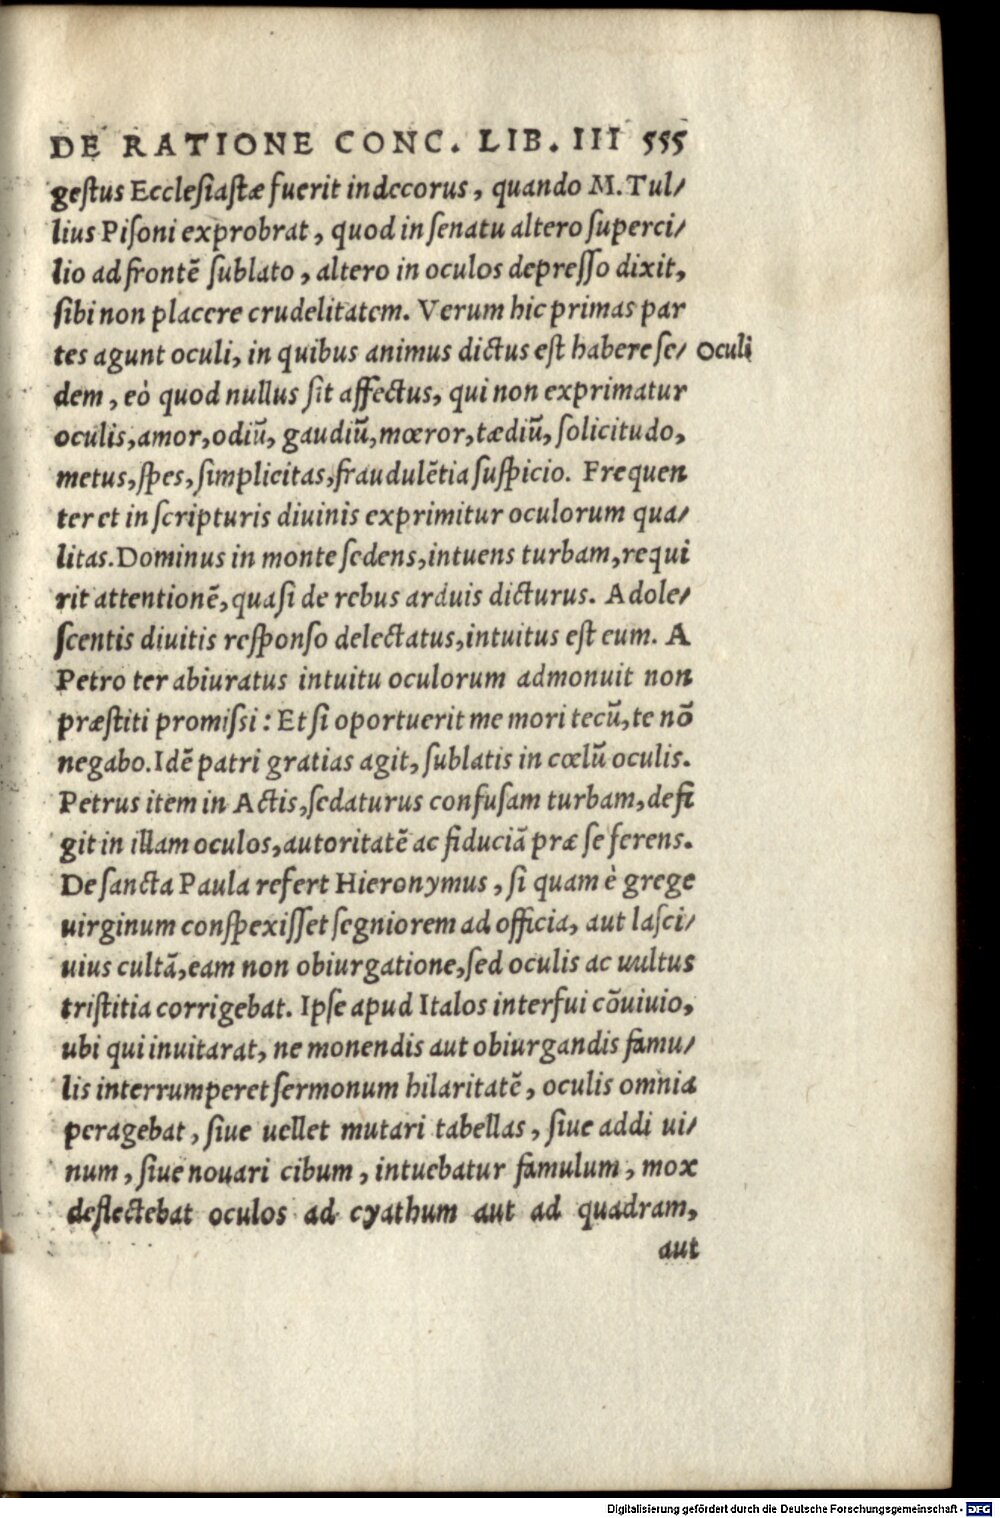 DE RATIONE CONC. LIB. III 555
geſtus Eccleſiaſtæ fuerit indecorus, quando M. Tul/
lius Piſoni exprobrat, quod in ſenatu altero ſuperci/
lio ad frontē ſublato, altero in oculos depreſſo dixit,
ſibi non placere crudelitatem. Verum hic primas par
tes agunt oculi, in quibus animus dictus eſt habere ſe/ Oculi
dem, eò quod nullus ſit affectus, qui non exprimatur
oculis, amor, odiū, gaudiū, mœror, tædiū, ſolicitudo,
metus, ſpes, ſimplicitas, fraudulētia ſuſpicio. Frequen
ter et in ſcripturis diuinis exprimitur oculorum qua/
litas. Dominus in monte ſedens, intuens turbam, requi
rit attentionē, quaſi de rebus arduis dicturus. Adole/
ſcentis diuitis reſponſo delectatus, intuitus eſt eum. A
Petro ter abiuratus intuitu oculorum admonuit non
præſtiti promiſſi: Et ſi oportuerit me mori tecū, te nō
negabo. Idē patri gratias agit, ſublatis in cœlū oculis.
Petrus item in Actis, ſedaturus confuſam turbam, defi
git in illam oculos, autoritatē ac fiduciā præ ſe ferens.
De ſancta Paula refert Hieronymus, ſi quam è grege
uirginum conſpexiſſet ſegniorem ad officia, aut laſci/
uius cultā, eam non obiurgatione, ſed oculis ac uultus
triſtitia corrigebat. Ipſe apud Italos interfui cōuiuio,
ubi qui inuitarat, ne monendis aut obiurgandis famu/
lis interrumperet ſermonum hilaritatē, oculis omnia
peragebat, ſiue uellet mutari tabellas, ſiue addi ui/
num, ſiue nouari cibum, intuebatur famulum, mox
deflectebat oculos ad cyathum aut ad quadram,
aut
Digitalisierung gefördert durch die Deutsche Forschungsgemeinschaft - DFG